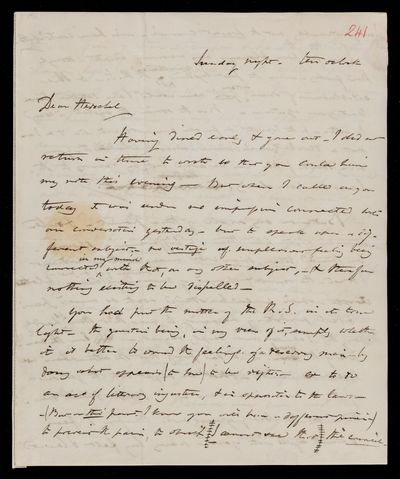 241
Sunday night - ten oclock
Dear Herschel
Having dined early & gone out - I did not
return in time to write so that you could have
my note this evening - But when I called on you
today it was under no impression connected with
our conversation yesterday - but to speak upon a dif-
ferent subject - no vestige of unpleasant feeling being
in my mind
connected with that, or any other subject, - & therefore
nothing existing to be dispelled -
You had put the matter of the R.S. in its true
light - the question being, in my view of it, simply whether
it is better to wound the feelings of a deserving man - by
doing what appears (to me) to be right - or to do
an act of literary injustice, & in opposition to the laws -
(But on this point I know you will have a different opinion)
to prevent the pain, to I cannot see that the council